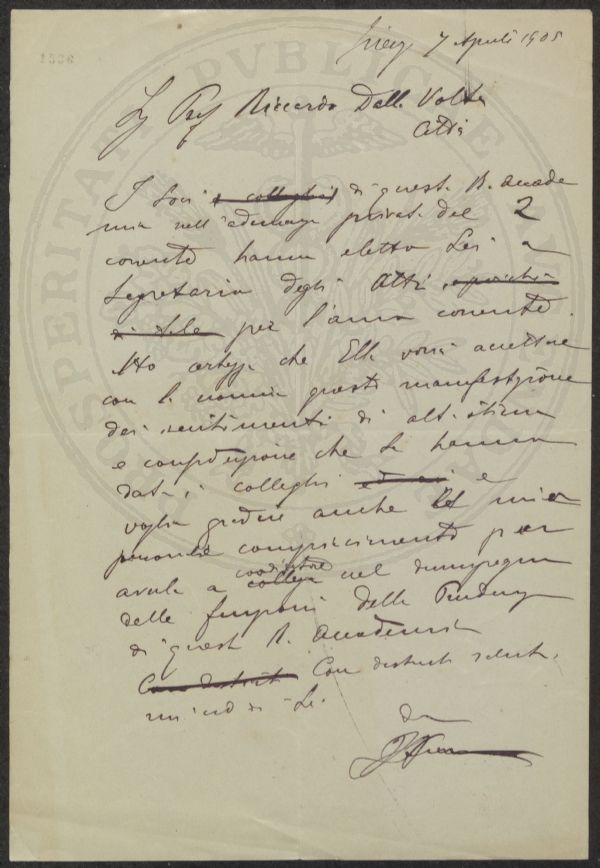 7 Aprile 1905
Prof Riccardo Dalla Volta
Città
I Soci e colleghi di questa R. Accade
mia nell'adunanza privata del 2
corrente hanno eletto Lei a
Segretario degli Atti
per l'anno corrente.
Ho certezza che Ella vorrà accettare
con la nomina questa manifestazione
dei sentimenti di alta stima
e considerazione che Le hanno
data i colleghi ed a e
voglia gradire anche il mio
personale compiacimento per
averla a coadiutore
collega nel disimpegno
delle funzioni della Presidenza
di questa R. Accademia
Con distinti Con distinti saluti
mi credo di Lei